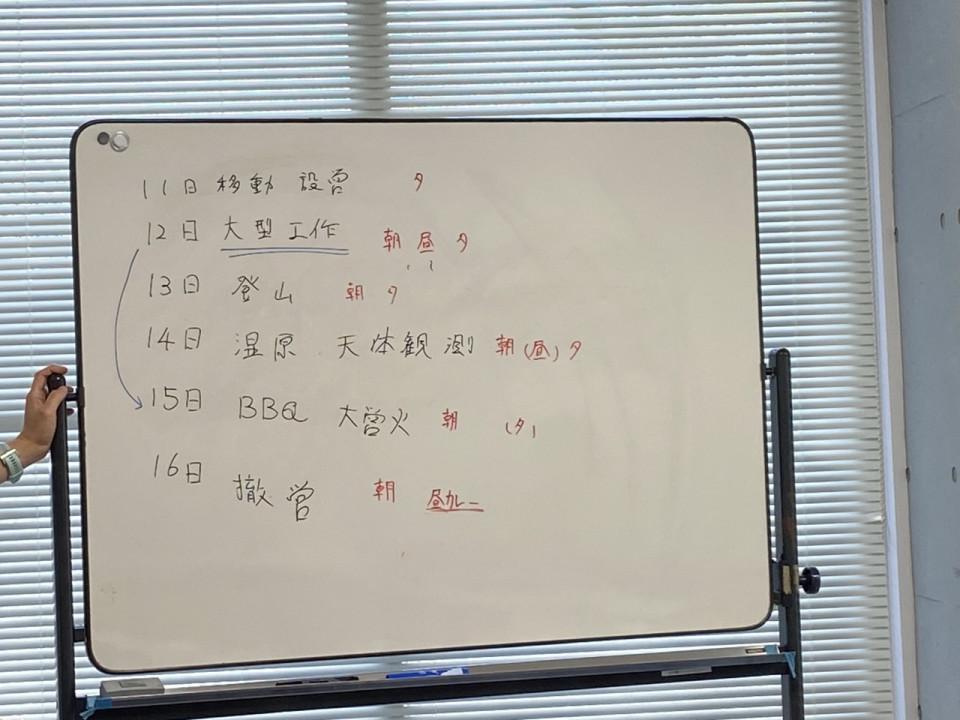 11日 移動 設営 夕
12日 大型工作 朝 昼 夕
13日 登山 朝 夕
14日 湿原 天体観測 朝 (昼) 夕
15日 BBQ 大営火 朝 (夕)
16日 撤営 朝 昼カレー